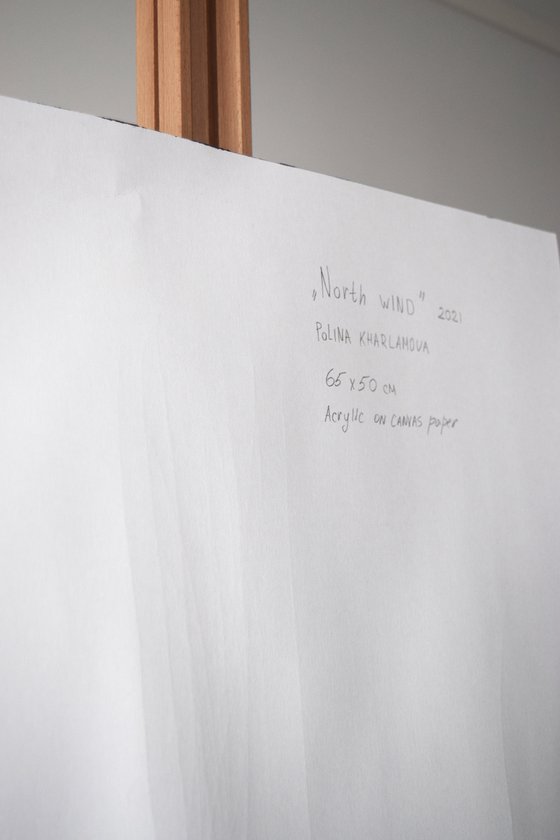 „North WIND" 2021
POLINA KHARLAMOVA
65 x 50 cm
Acrylic ON CANVAS paper